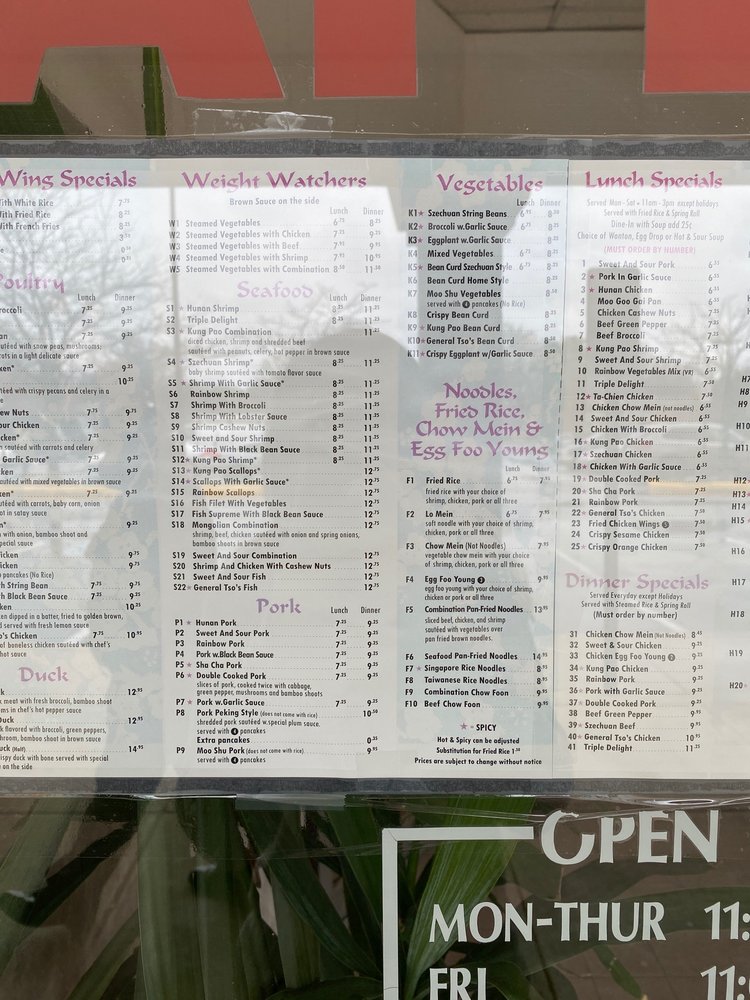 Wing Specials
With White Rice 7.75
With Fried Rice 8.25
With French Fries 8.25
Poultry
Lunch Dinner
roccoli 7.25 9.25
sautéed with snow peas, mushrooms,
rots in a light delicate sauce
ken* 7.25 9.25
10.25
téed with crispy pecans and celery in a
ew Nuts 7.75 9.25
our Chicken 7.25 9.25
icken* 7.25 9.25
sautéed with carrots and celery
Garlic Sauce* 7.25 9.25
cken 7.25 9.25
autéed with mixed vegetables in brown sauce
en* 7.25 9.25
utéed with carrots, baby corn, onion
ot in satay sauce
with onion, bamboo shoot and
pecial sauce
icken 9.25
icken 9.75
pancakes (No Rice)
th String Bean 7.75 9.25
h Black Bean Sauce 7.25 9.25
ken 10.25
dipped in a batter, fried to golden brown,
d served with fresh lemon sauce
o's Chicken 7.75 10.95
of boneless chicken sautéed with chef's
hot sauce
Duck
12.95
meat with fresh broccoli, bamboo shoot
ms in chef's hot pepper sauce
Duck 12.95
k flavored with broccoli, green peppers,
hroom, bamboo shoot in brown sauce
uck (Half) 14.95
ispy duck with bone served with special
on the side
Weight Watchers
Brown Sauce on the side
Lunch Dinner
W1 Steamed Vegetables 6.75 8.25
W2 Steamed Vegetables with Chicken 7.25 9.25
W3 Steamed Vegetables with Beef 7.95 9.95
W4 Steamed Vegetables with Shrimp 7.95 10.95
W5 Steamed Vegetables with Combination 8.50 11.50
Seafood
Lunch Dinner
S1 * Hunan Shrimp 8.25 11.25
S2 Triple Delight 8.25 11.25
S3 * Kung Pao Combination 11.25
diced chicken, shrimp and shredded beef
sautéed with peanuts, celery, hot pepper in brown sauce
S4 * Szechuan Shrimp* 8.25 11.25
baby shrimp sautéed with tomato flavor sauce
S5 * Shrimp With Garlic Sauce* 8.25 11.25
S6 Rainbow Shrimp 8.25 11.25
S7 Shrimp With Broccoli 8.25 11.25
S8 Shrimp With Lobster Sauce 8.25 11.25
S9 Shrimp Cashew Nuts 8.25 11.25
S10 Sweet and Sour Shrimp 8.25 11.25
S11 Shrimp With Black Bean Sauce 8.25 11.25
S12 * Kung Pao Shrimp* 8.25 11.25
S13 * Kung Pao Scallops* 12.75
S14 * Scallops With Garlic Sauce* 12.75
S15 Rainbow Scallops 12.75
S16 Fish Filet With Vegetables 12.75
S17 Fish Supreme With Black Bean Sauce 12.75
S18 Mongolian Combination 12.75
shrimp, beef, chicken sautéed with onion and spring onions,
bamboo shoots in brown sauce
S19 Sweet And Sour Combination 12.75
S20 Shrimp And Chicken With Cashew Nuts 12.75
S21 Sweet and Sour Fish 12.75
S22 * General Tso's Fish 12.75
Pork
Lunch Dinner
P1 * Hunan Pork 7.25 9.25
P2 Sweet And Sour Pork 7.25 9.25
P3 Rainbow Pork 7.25 9.25
P4 Pork w.Black Bean Sauce 7.25 9.25
P5 * Sha Cha Pork 7.25 9.25
P6 * Double Cooked Pork 7.25 9.25
slices of pork, cooked twice with cabbage,
green pepper, mushrooms and bamboo shoots
P7 * Pork w.Garlic Sauce 7.25 9.25
P8 Pork Peking Style (does not come with rice) 10.50
shredded pork sautéed w.special plum sauce.
served with 4 pancakes
Extra pancakes 0.35
P9 Moo Shu Pork (does not come with rice) 9.95
served with 4 pancakes
Vegetables
Lunch Dinner
K1 * Szechuan String Beans 6.95 8.50
K2 * Broccoli w.Garlic Sauce
K3 * Eggplant w.Garlic Sauce
K4 Mixed Vegetables
K5 * Bean Curd Szechuan Style
K6 Bean Curd Home Style
K7 Moo Shu Vegetables
served with 4 pancakes (No Rice)
K8 Crispy Bean Curd
K9 * Kung Pao Bean Curd
K10 * General Tso's Bean Curd
K11 * Crispy Eggplant w/Garlic Sauce 8.50
Noodles,
Fried Rice,
Chow Mein &
Egg Foo Young
Lunch Dinner
F1 Fried Rice 6.75 7.95
fried rice with your choice of
shrimp, chicken, pork or all three
F2 Lo Mein 7.95
soft noodle with your choice of shrimp,
chicken, pork or all three
F3 Chow Mein (Not Noodles) 7.95
vegetable chow mein with your choice
of shrimp, chicken, pork or all three
F4 Egg Foo Young 3 9.95
egg foo young with your choice of shrimp,
chicken or pork or all three
F5 Combination Pan-Fried Noodles 13.95
sliced beef, chicken, and shrimp
sautéed with vegetables over
pan fried brown noodles.
F6 Seafood Pan-Fried Noodles 14.95
F7 * Singapore Rice Noodles 8.95
F8 Taiwanese Rice Noodles 8.95
F9 Combination Chow Foon 9.95
F10 Beef Chow Foon 9.95
* - SPICY
Hot & Spicy can be adjusted
Substitution for Fried Rice 1.50
Prices are subject to change without notice
Lunch Specials
Served Mon - Sat • 11am - 3pm except holidays
Served with Fried Rice & Spring Roll
Dine-In with Soup add 25¢
Choice of Wonton, Egg Drop or Hot & Sour Soup
(MUST ORDER BY NUMBER)
1 Sweet And Sour Pork 6.55
2 * Pork In Garlic Sauce 6.55
3 * Hunan Chicken 6.55
4 Moo Goo Gai Pan 6.55
5 Chicken Cashew Nuts 6.55
6 Beef Green Pepper 6.55
7 Beef Broccoli 6.55
8 * Kung Pao Shrimp 6.55
9 Sweet And Sour Shrimp 6.55
10 Rainbow Vegetables Mix (VR) 6.55
11 Triple Delight 6.55
12 * Ta-Chien Chicken 6.55
13 Chicken Chow Mein (not noodles) 6.55
14 Sweet And Sour Chicken 6.55
15 Chicken With Broccoli 6.55
16 * Kung Pao Chicken 6.55
17 * Szechuan Chicken 6.55
18 * Chicken With Garlic Sauce 6.55
19 * Double Cooked Pork 6.55
20 * Sha Cha Pork 6.55
21 Rainbow Pork 6.55
22 * General Tso's Chicken 6.55
23 Fried Chicken Wings 5 6.55
24 Crispy Sesame Chicken 6.55
25 * Crispy Orange Chicken 6.55
Dinner Specials
Served Everyday except Holidays
Served with Steamed Rice & Spring Roll
(Must order by number)
31 Chicken Chow Mein (Not Noodles) 8.45
32 Sweet & Sour Chicken 9.95
33 Chicken Egg Foo Young 2 9.95
34 * Kung Pao Chicken 9.95
35 Rainbow Pork 9.95
36 * Pork with Garlic Sauce 9.95
37 * Double Cooked Pork 9.95
38 Beef Green Pepper 9.95
39 * Szechuan Beef 9.95
40 * General Tso's Chicken 10.95
41 Triple Delight 11.25
H7
H8
H9
H11
H12 *
H13
H14
H15
H16
H17
H18
H19
H20 *
OPEN
MON-THUR 11:
FRI 11: